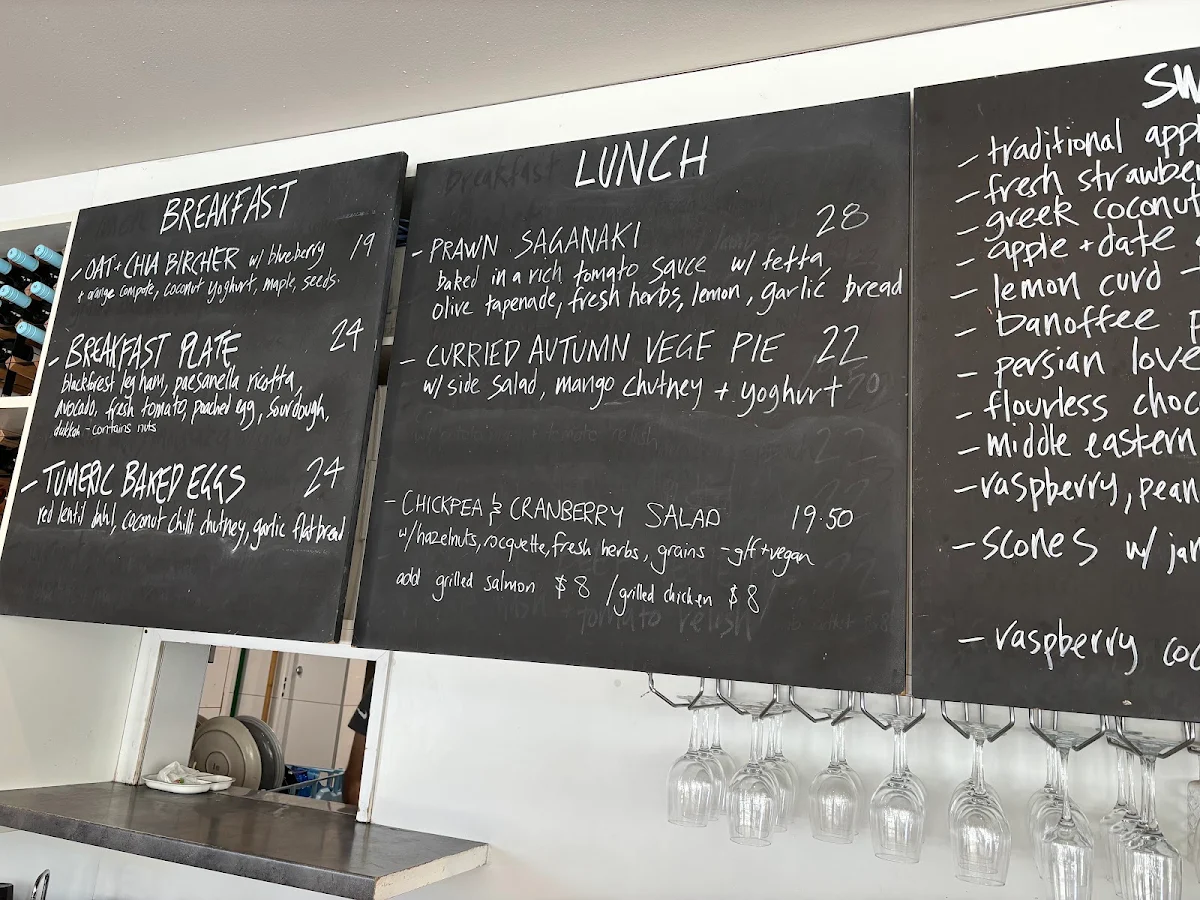 BREAKFAST
- OAT + CHIA BIRCHER w/ blueberry 19
+ orange compote, coconut yoghurt, maple, seeds.
- BREAKFAST PLATE 24
blackforest leg ham, paesanella ricotta,
avocado, fresh tomato, poached egg, sourdough,
dukkah - contains nuts
- TUMERIC BAKED EGGS 24
red lentil dahl, coconut chilli chutney, garlic flatbread
LUNCH
- PRAWN SAGANAKI 28
baked in a rich tomato sauce w/ fetta
olive tapenade, fresh herbs, lemon, garlic bread
- CURRIED AUTUMN VEGE PIE 22
w/ side salad, mango chutney + yoghurt
- CHICKPEA & CRANBERRY SALAD 19.50
w/ hazelnuts, rocquette, fresh herbs, grains - glf + vegan
add grilled salmon $8 / grilled chicken $8
tomato relish
SW
- traditional appl
- fresh strawber
- greek coconut
- apple + date
- lemon curd
- banoffee
- persian love
- flourless choc
- middle eastern
- raspberry, pean
- scones w/ jam
- raspberry coc